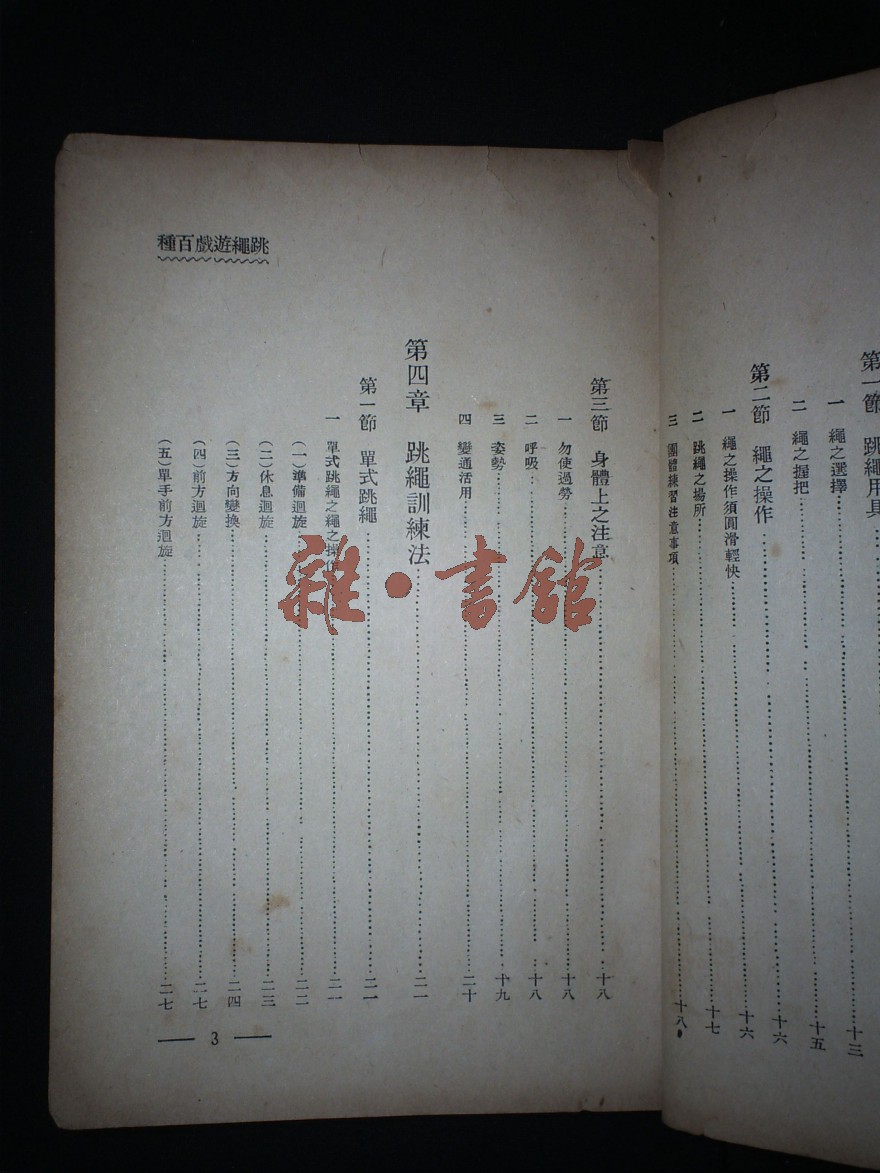 第一節 跳繩用具
一 繩之選擇 十三
二 繩之握把 十五
第二節 繩之操作 十六
一 繩之操作須圓滑輕快 十六
二 跳繩之場所 十七
三 團體練習注意事項 十八
種百戲遊繩跳
第三節 身體上之注意 十八
一 勿使過勞 十八
二 呼吸 十八
三 姿勢 十九
四 變通活用 二十
第四章 跳繩訓練法 二一
第一節 單式跳繩 二一
一 單式跳繩之繩之操作 二一
(一)準備迴旋 二二
(二)休息迴旋 二三
(三)方向變換 二四
(四)前方迴旋 二七
(五)單手前方迴旋 二七
3
雜·書館